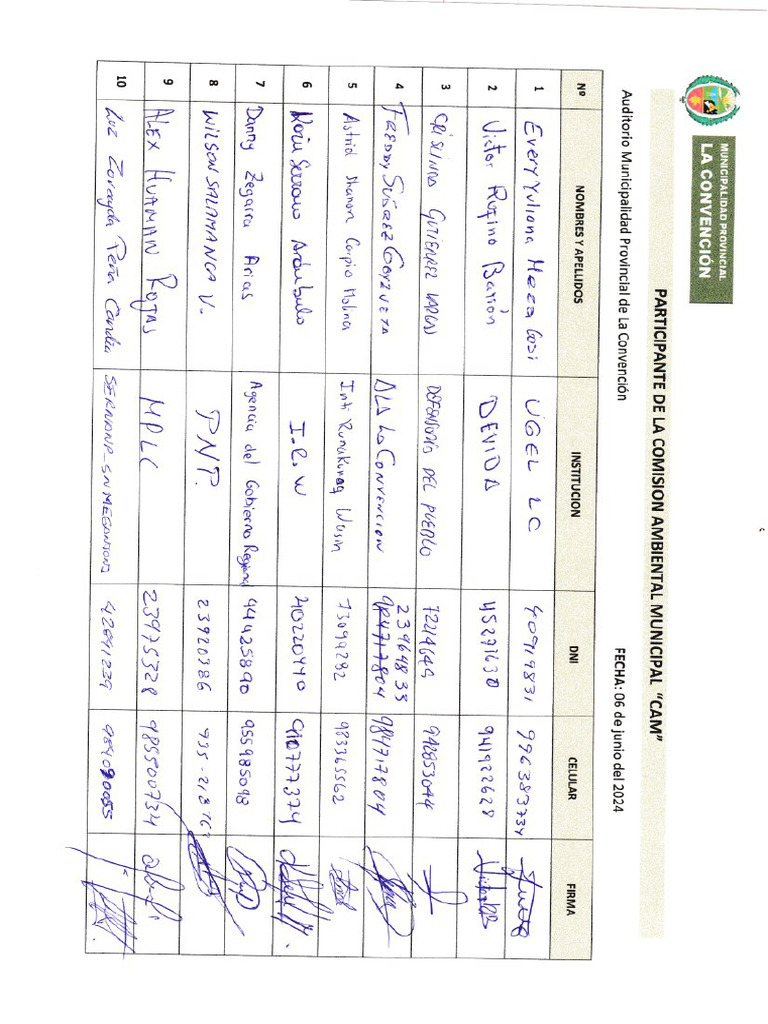 MUNICIPALIDAD PROVINCIAL
LA CONVENCIÓN
PARTICIPANTE DE LA COMISION AMBIENTAL MUNICIPAL "CAM"
Auditorio Municipalidad Provincial de La Convención FECHA: 06 de junio del 2024
Nº NOMBRES Y APELLIDOS INSTITUCION DNI CELULAR FIRMA
1 Every Yuliana Meza Cosi UGEL LC 40919831 996383734
2 Victor Rufino Barrón DEVIDA 45291630 941922628
3 CRISLINDA GUTIERREZ VARGAS DEFENSORIA DEL PUEBLO 72214649 942853044
4 FREDDY SUÁREZ GONZUETA ALA LA CONVENCION 23964835 984717804
5 Astrid Shanon Carpio Molina Inti Runakunaq Wasin 73099282 983365562
6 Serrano Arámbulo I.R.W 40220440 910777374
7 Danny Zegarra Arias Agencia del Gobierno Regional 44925890 955985098
8 WILSON SALAMANCA V. PNT. 23920386
9 ALEX HUAMAN ROJAS MPLC 23975328 985500734
10 Luz Zorayda Peña Candia SERNANP_SNMEGANTONI 42891239 984090055